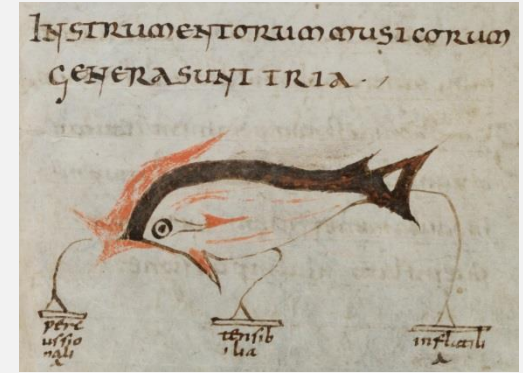 INSTRUMENTORUM MUSICORUM
GENERA SUNT TRIA
perc
ussio
nali
a
tensib
ilia
inflatili
a